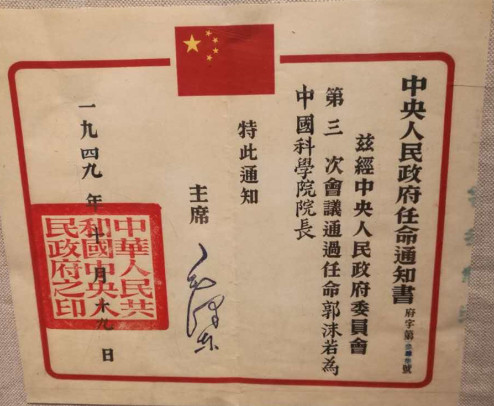 中央人民政府任命通知書
府字第 號
茲經中央人民政府委員會
第三次會議通過任命郭沫若為
中國科學院院長
特此通知
主席 毛澤东
一九四九年十月十九日
中華人民共
和國中央人
民政府之印